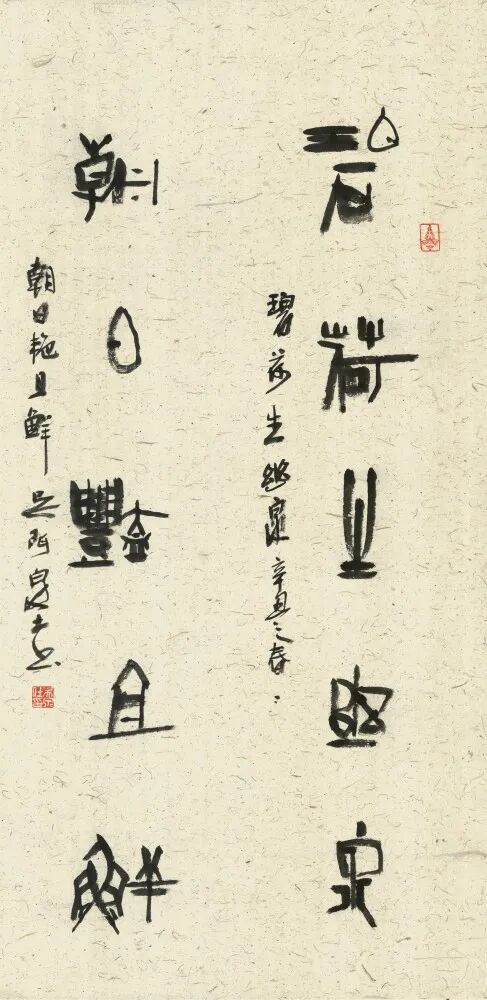 碧荷生幽泉
碧荷生幽泉 辛丑之春
朝日艳且鲜
朝日艳且鲜 吴阿泉书